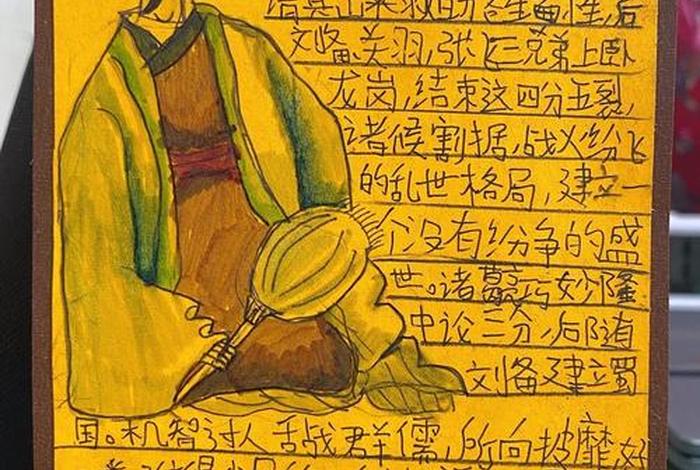 请其出来救助苍生百姓,后
刘备,关羽,张飞三兄弟上卧
龙岗,结束这四分五裂,
诸候割据,战火纷飞
的乱世格局,建立一
个没有纷争的盛
世。诸葛亮妙隆
中论三分,后随
刘备建立蜀
国。机智过人舌战群儒,所向披靡,好